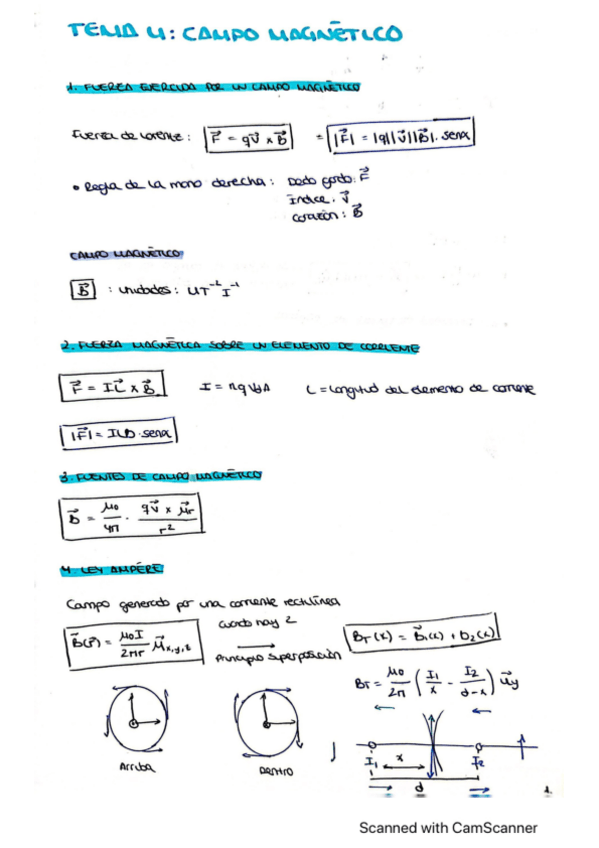 TEMA 4: CAMPO MAGNÉTICO
1. FUERZA EJERCIDA POR UN CAMPO MAGNÉTICO
Fuerza de Lorentz: F⃗ = qv⃗ x B⃗ = |F⃗| = |q||v⃗||B⃗|. senα
• Regla de la mano derecha: Dedo gordo: F⃗
Índice: v⃗
corazón: B⃗
CAMPO MAGNÉTICO
B⃗ : unidades: MT⁻²I⁻¹
2. FUERZA MAGNÉTICA SOBRE UN ELEMENTO DE CORRIENTE
F⃗ = IL⃗ x B⃗ I = nqVdA L = longitud del elemento de corriente
|F⃗| = ILB·senα
3. FUENTES DE CAMPO MAGNÉTICO
B⃗ = μ₀/4π · qv⃗ x μ⃗r/r²
4. LEY AMPÉRE
Campo generado por una corriente rectilínea
cuando hay 2
B⃗(r⃗) = μ₀I/2πr μ⃗x,y,z
Principio superposición
BT(x) = B⃗₁(x) + b₂(x)
BT = μ₀/2π (I₁/x - I₂/d-x) u⃗y
I₁ x I₂
d
Arriba
DENTRO
1.
Scanned with CamScanner